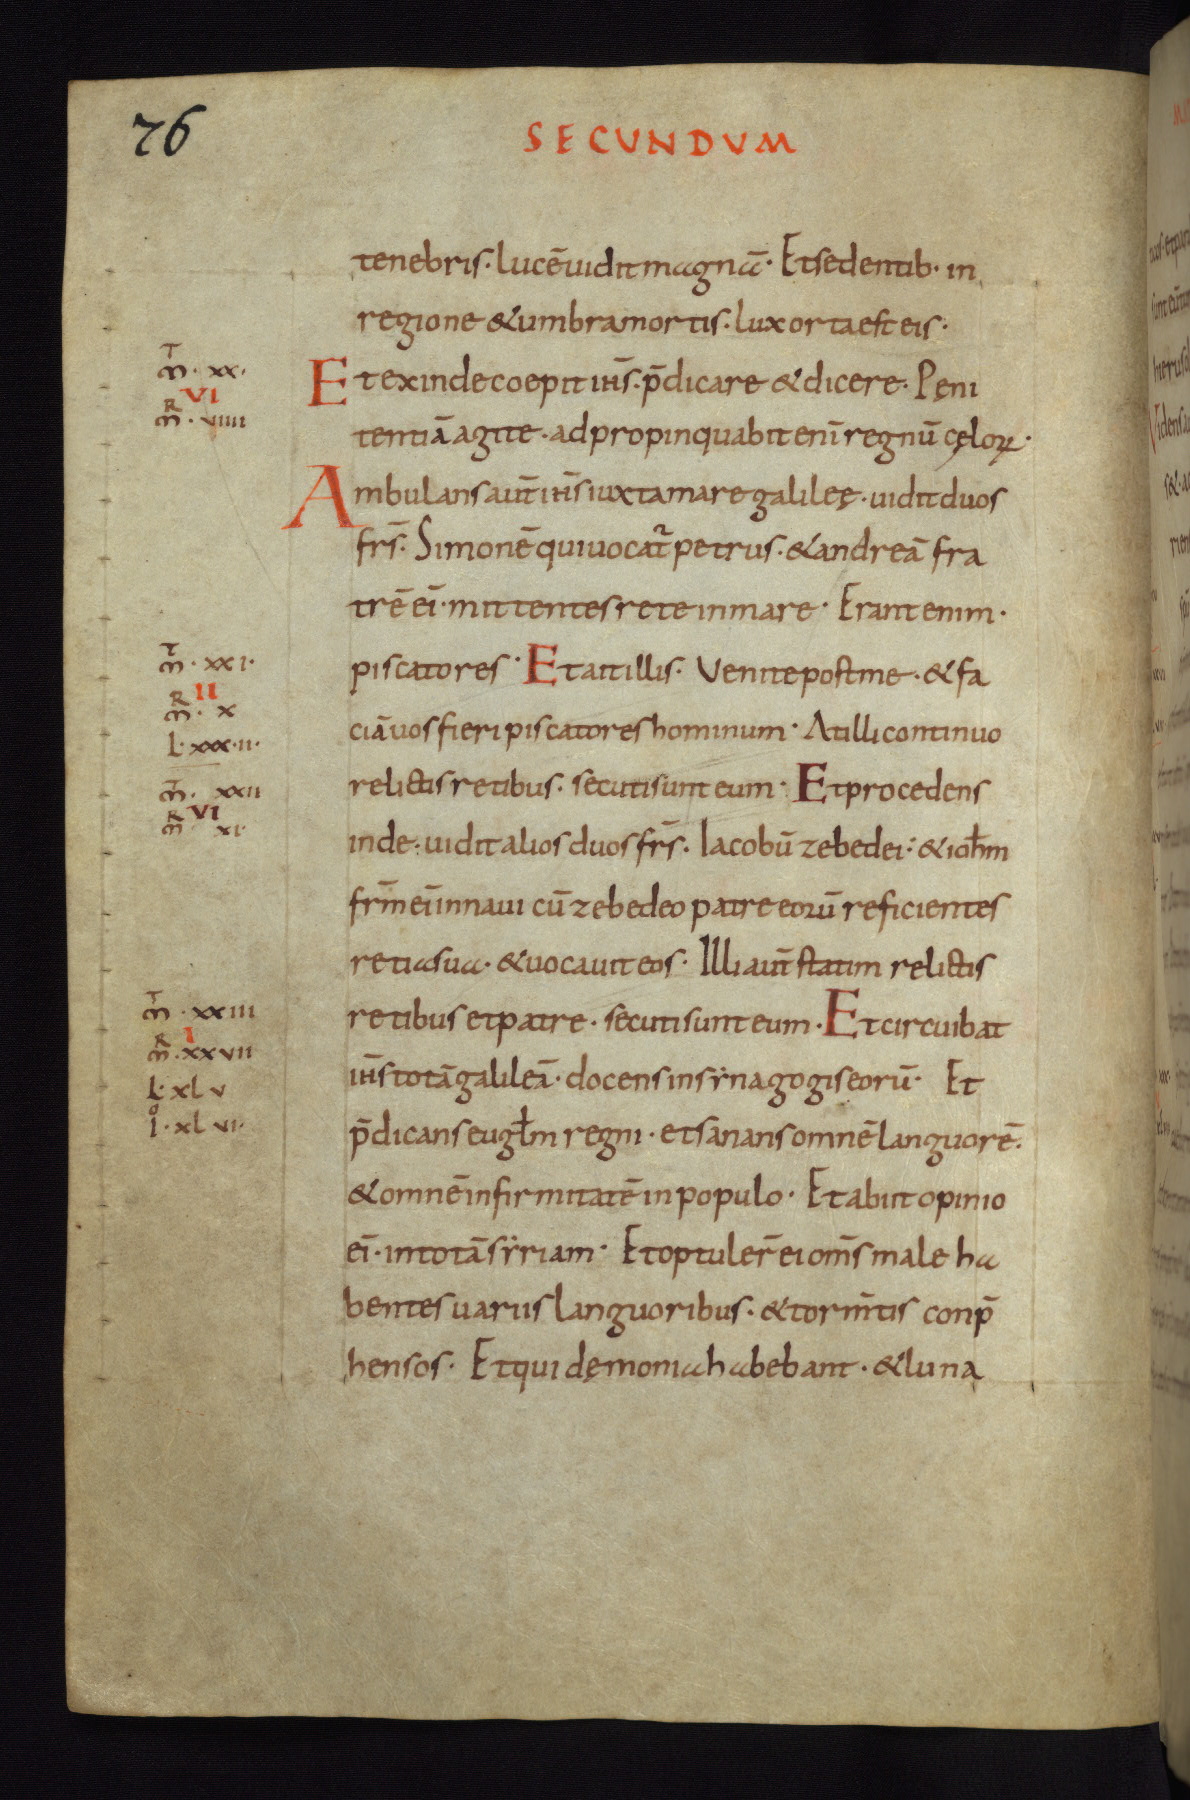 76
SECUNDUM
tenebris· lucē uidit magnā· Et sedentib· in
regione & umbra mortis· lux orta est eis·
Et exinde coepit ihs̄· p̄dicare & dicere· Pęni
tentiā agite· adpropinquabit enī regnū cęloꝝ·
Ambulans aut̄ ihs̄ iuxta mare galileę· uidit duos
frs̄· Simonē qui uocat᷑ petrus· & andreā fra
trē ei· mittentes rete in mare· Erant enim·
piscatores· Et ait illis· Venite post me· & fa
ciā uos fieri piscatores hominum· At illi continuo
relictis retibus· secuti sunt eum· Et procedens
inde· uidit alios duos frs̄· Iacobū zebedei· & ioh̄m
frm̄ ei in naui cū zebedeo patre eorū reficientes
retia sua· & uocauit eos· Illi aut̄ statim relictis
retibus et patre· secuti sunt eum· Et circuibat
ihs̄ totā galileā· docens in synagogis eorū· Et
p̄dicans eugl̄m regni· et sanans omnē languorē·
& omnē infirmitatē in populo· Et abiit opinio
ei· in totā syriam· Et optuler̄ ei om̄s male ha
bentes uariis languoribus· & torm̄tis conp̄
hensos· Et qui dęmonia habebant· & luna
T
m· xx·
VI
R
m· viiii
T
m· xxi·
II
R
m· x
L· xxx·ii·
T
m· xxii
VI
R
m xi·
T
m· xxiii
I
R
m· xxvii
L· xlv
o
I· xlvi·